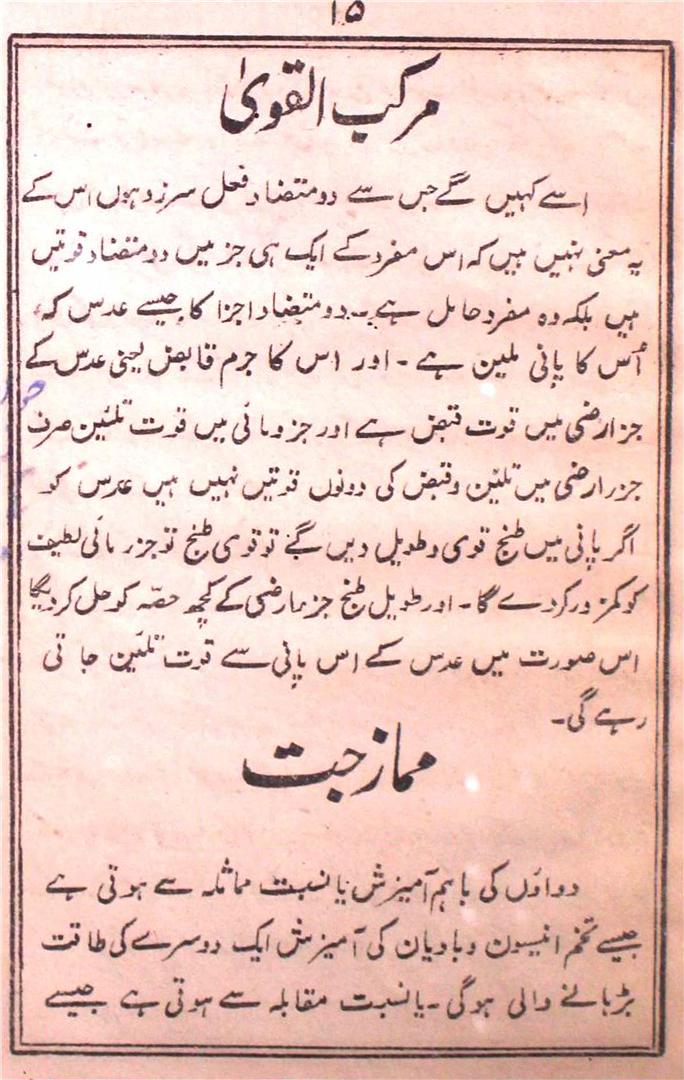 ۱۵
مرکب القویٰ
اسے کہیں گے جس سے دو متضاد فعل سرزد ہوں اس کے
یہ معنی نہیں ہیں کہ اس مفرد کے ایک ہی جز میں دو متضاد قوتیں
ہیں بلکہ وہ مفرد حامل ہے۔ دو متضاد اجزا کا جیسے عدس کہ
اُس کا پانی ملین ہے۔ اور اس کا جرم قابض یعنی عدس کے
جز ارضی میں قوت قبض ہے اور جز ومائی میں قوت تلئین صرف
جزرارضی میں تلئین وقبض کی دونوں قوتیں نہیں ہیں عدس کو
اگر پانی میں طبخ قوی وطویل دیں گے تو قوی طبخ تو جزر مائی لطیف
کو کمزور کر دے گا۔ اور طویل طبخ جز ارضی کے کچھ حصّہ کو حل کر دیگا
اس صورت میں عدس کے اس پانی سے قوت تلئین جاتی
رہے گی۔
ممازجبت
دواؤں کی باہم آمیزش یا نسبت مماثلہ سے ہوتی ہے
جیسے تخم انیسون وبادیان کی آمیزش ایک دوسرے کی طاقت
بڑہانے والی ہوگی۔ یا نسبت مقابلہ سے ہوتی ہے جیسے